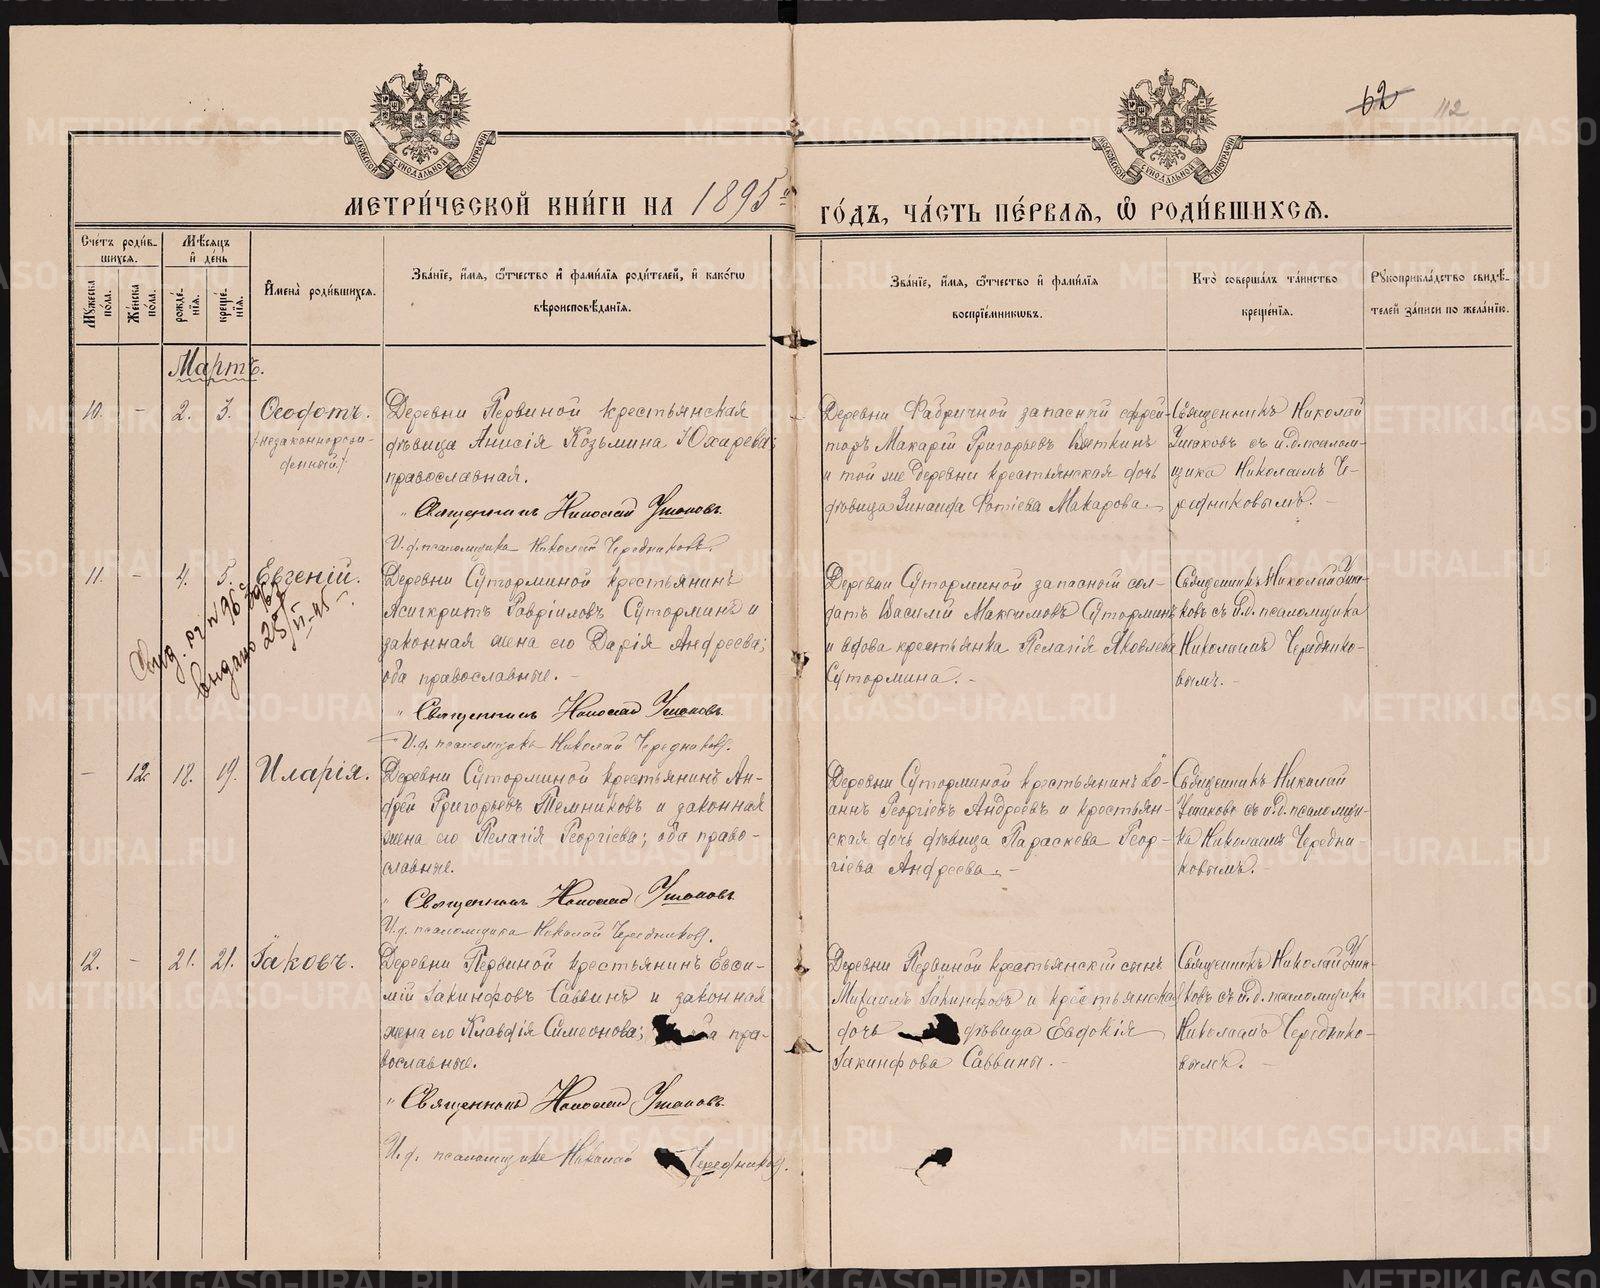 62 112
МОСКОВСКОЙ СѴНОДАЛЬНОЙ ТИПОГРАФІИ
МОСКОВСКОЙ СѴНОДАЛЬНОЙ ТИПОГРАФІИ
МЕТРИ́ЧЕСКОЙ КНИ́ГИ НА 1895й ГО́ДЪ, ЧА́СТЬ ПЕ́РВАЯ, Ѡ РОДИ́ВШИХСѦ.
Сче́тъ роди́в-
шихся.
Мѣ́сяцъ
и де́нь
Мꙋ́жеска по́ла.
Же́нска по́ла.
рожде́-
нія.
креще́-
нія.
Имена̀ роди́вшихся.
Зва́нїе, и́мя, ѻ҆́тчество и фами́лїя роди́телей, и како́гѡ
вѣроисповѣ́данїя.
Зва́нїе, и́мя, ѻ҆́тчество и фами́лїя
воспрїе́мникѡвъ.
Кто̀ соверша́лъ та́инство
креще́нїя.
Рꙋкоприкла́дство свидѣ́-
телей за́писи по жела́нїю.
Мартъ.
10. - 2. 3. Ѳеодотъ.
(незаконнорож-
денный)
Деревни Первиной крестьянская
дѣвица Анисія Козьмина Юхарева;
православная.
Священникъ Николай Ушаковъ.
И. д. псаломщика Николай Чередниковъ.
Деревни Фабричной запасный ефрей-
торъ Макарій Григорьевъ Вяткинъ
и той же деревни крестьянская дочь
дѣвица Зинаида Фотіева Макарова.-
Священникъ Николай
Ушаковъ съ и. д. псалом-
щика Николаемъ Че-
редниковымъ. -
11. - 4. 5. Евгеній.
выдано 25/VI-45
Деревни Суторминой крестьянинъ
Асигкритъ Гавріиловъ Сутормин и
законная жена его Дарія Андреева;
оба православные. -
Священникъ Николай Ушаковъ.
И. д. псаломщика Николай Чередниковъ.
Деревни Суторминой запасной сол-
датъ Василій Максимовъ Сутормин
и вдова крестьянка Пелагія Яковлева
Сутормина. -
Священникъ Николай Уша-
ковъ съ и. д. псаломщика
Николаемъ Чередников-
вымъ. -
- 12. 18. 19. Иларія.
Деревни Суторминой крестьянинъ Ан-
дрей Григорьевъ Темниковъ и законная
жена его Пелагія Георгіева; оба право-
славные.
Священникъ Николай Ушаковъ
И. д. псаломщика Николай Чередниковъ.
Деревни Суторминой крестьянинъ Іо-
аннъ Георгіевъ Андреевъ и крестьян-
ская дочь дѣвица Параскева Геор-
гіева Андреева. -
Священникъ Николай
Ушаковъ съ и. д. псаломщи-
ка Николаемъ Чередни-
ковымъ. -
12. - 21. 21. Іаковъ.
Деревни Первиной крестьянинъ Евѳи-
мій Іакинфовъ Саввинъ и законная
жена его Клавдія Симеонова; оба пра-
вославные.
Священникъ Николай Ушаковъ
И. д. псаломщика Николай Чередниковъ.
Деревни Первиной крестьянскій сынъ
Михаилъ Іакинфовъ и крестьянская
дочь дѣвица Евдокія
Іакинфова Саввины. -
Священникъ Николай Уша-
ковъ съ и. д. псаломщика
Николаемъ Чередников-
вымъ. -
METRIKI.GASO-URAL.RU